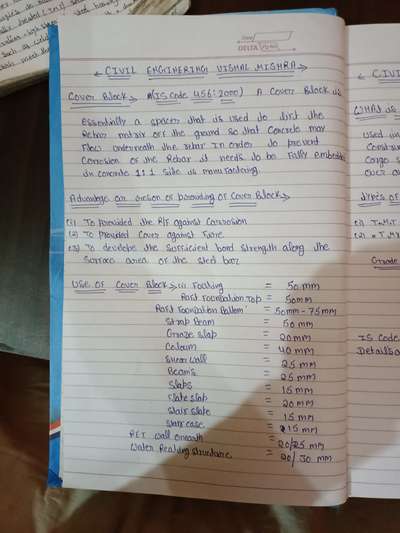 DELTA
CIVIL ENGINEERING VISHAL MISHRA
Cover Block → (IS Code 456:2000) A Cover Block is
essentially a spacer that is used to lift the
Rebar matrix off the ground so that concrete may
Flow underneath the rebar in order to prevent
Corrosion of the Rebar it needs to be fully embedded
in concrete 1:1:1 Site is manufacturing.
Advantage or of providing of Cover Block →
(1) To provided the R/F against Corrosion
(2) To provided Cover against Fire
(3) To develope the sufficient bond strength along the
Surface area of the steel bar
Use of Cover Block → in Footing = 50 mm
Raft Foundation Top = 50mm
Raft Foundation Bottom = 50mm - 75mm
Strap Beam = 50 mm
Slap = 20mm
Caloum = 40 mm
Shear Wall = 25 mm
Beam's = 25 mm
Slabs = 15 mm
slap = 20 mm
Stair = 15 mm
Stair case = 15 mm
Wall = 20/25 mm
Water = 20/30 mm
CIVI
WHAT is
Used in
Const
over a
Types of
(1) T.M.T
Grade
IS Code
Details